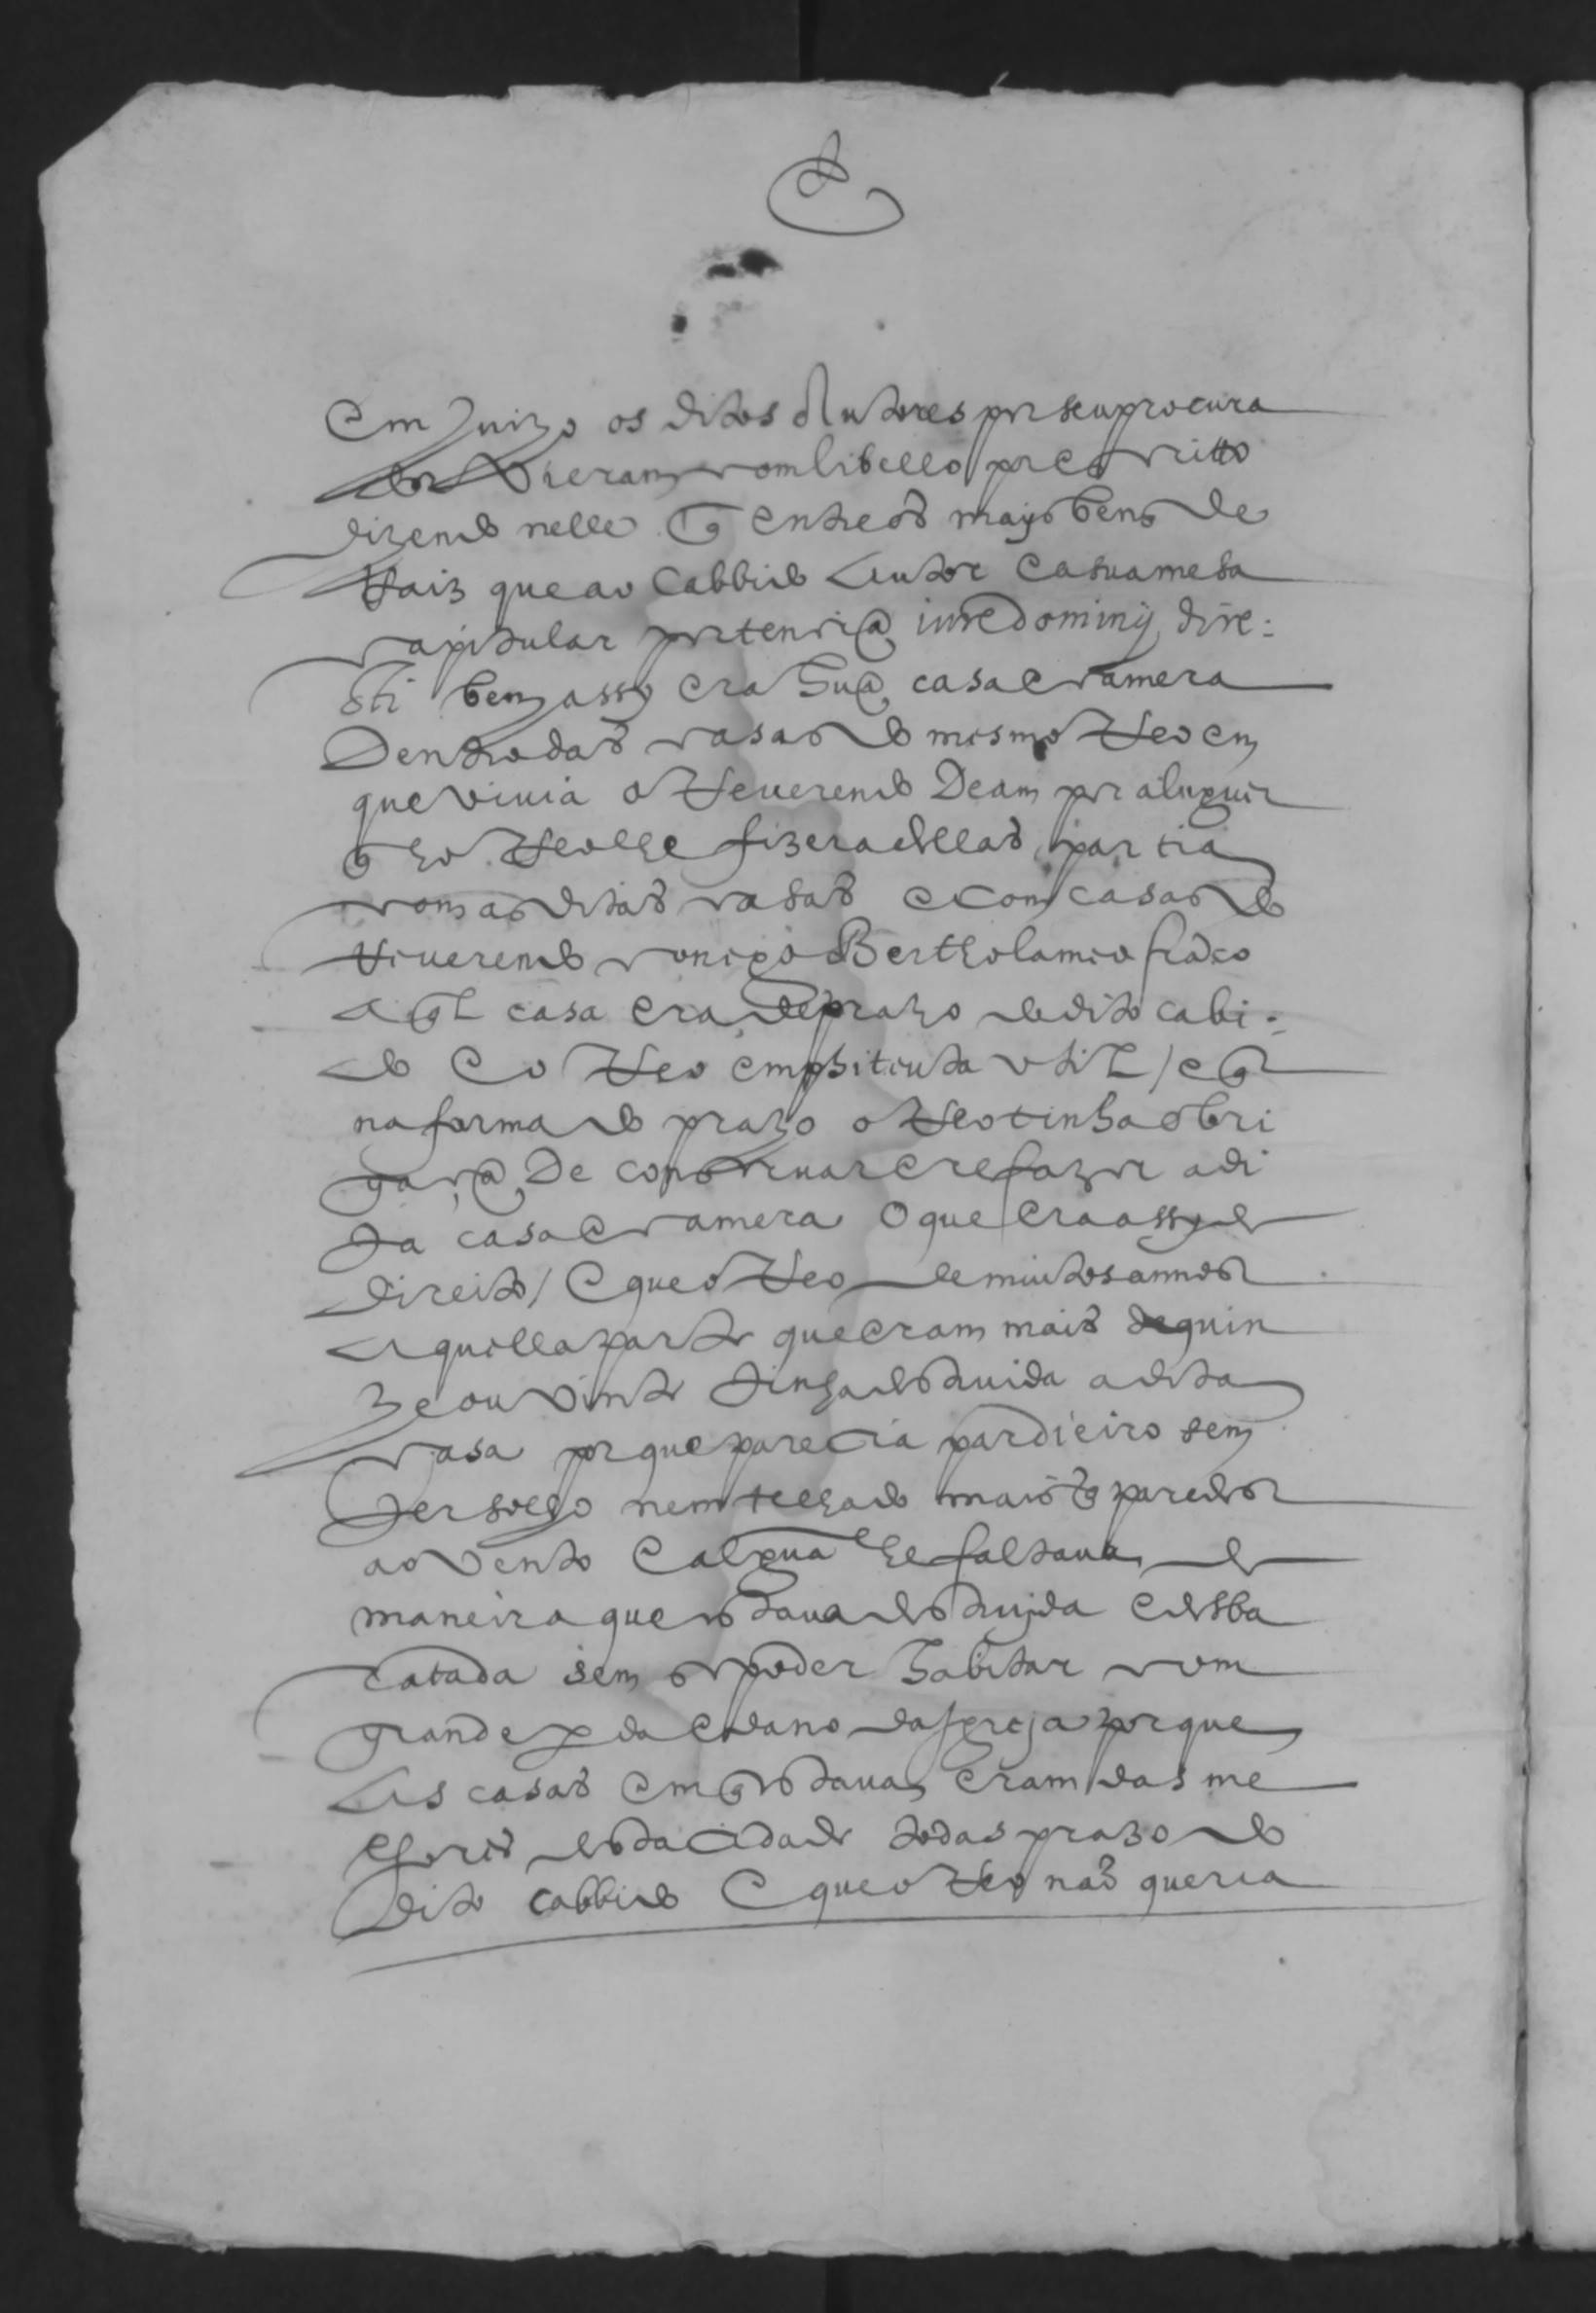 Em Juizo os ditos Autores por seu procura
dor vieram com libello por escritto
dizendo nelle q̃ entre os mays bens de
Raiz que ao Cabbido Autor e a sua mesa
capitular pertencia iure dominij dire-
cti bem assy era hũa casa e camera
Dentro das casas do mesmo Reo em
que viuia o Reuerendo Deam por aluguer
q̃ ho Reo lhe fizera dellas partia
com as ditas casas e com casas do
Reuerendo conigo Bertholameu
a ql casa era de prazo do dito cabi-
do e o Reo emphiteuta vtil / e q̃
na forma do prazo o Reo tinha obri
gaçã De conseruar e refazer a di
ta casa e camera O que era assy de
direito / E que o Reo de muitos annos
a quella parte que eram mais de quin
ze ou vinte tinha destruida a dita
casa por que parecia pardieiro sem
ter solho nem telhado mais q̃ paredes
ao vento E algũa lhe faltaua de
maneira que estaua destruyda e desba
ratada sem se poder habitar com
grande perda e dano da Igreja por que
as casas em q̃ estaua eram das me
lhores desta cidade todas prazo do
dito cabbido E que o Reo naõ queria